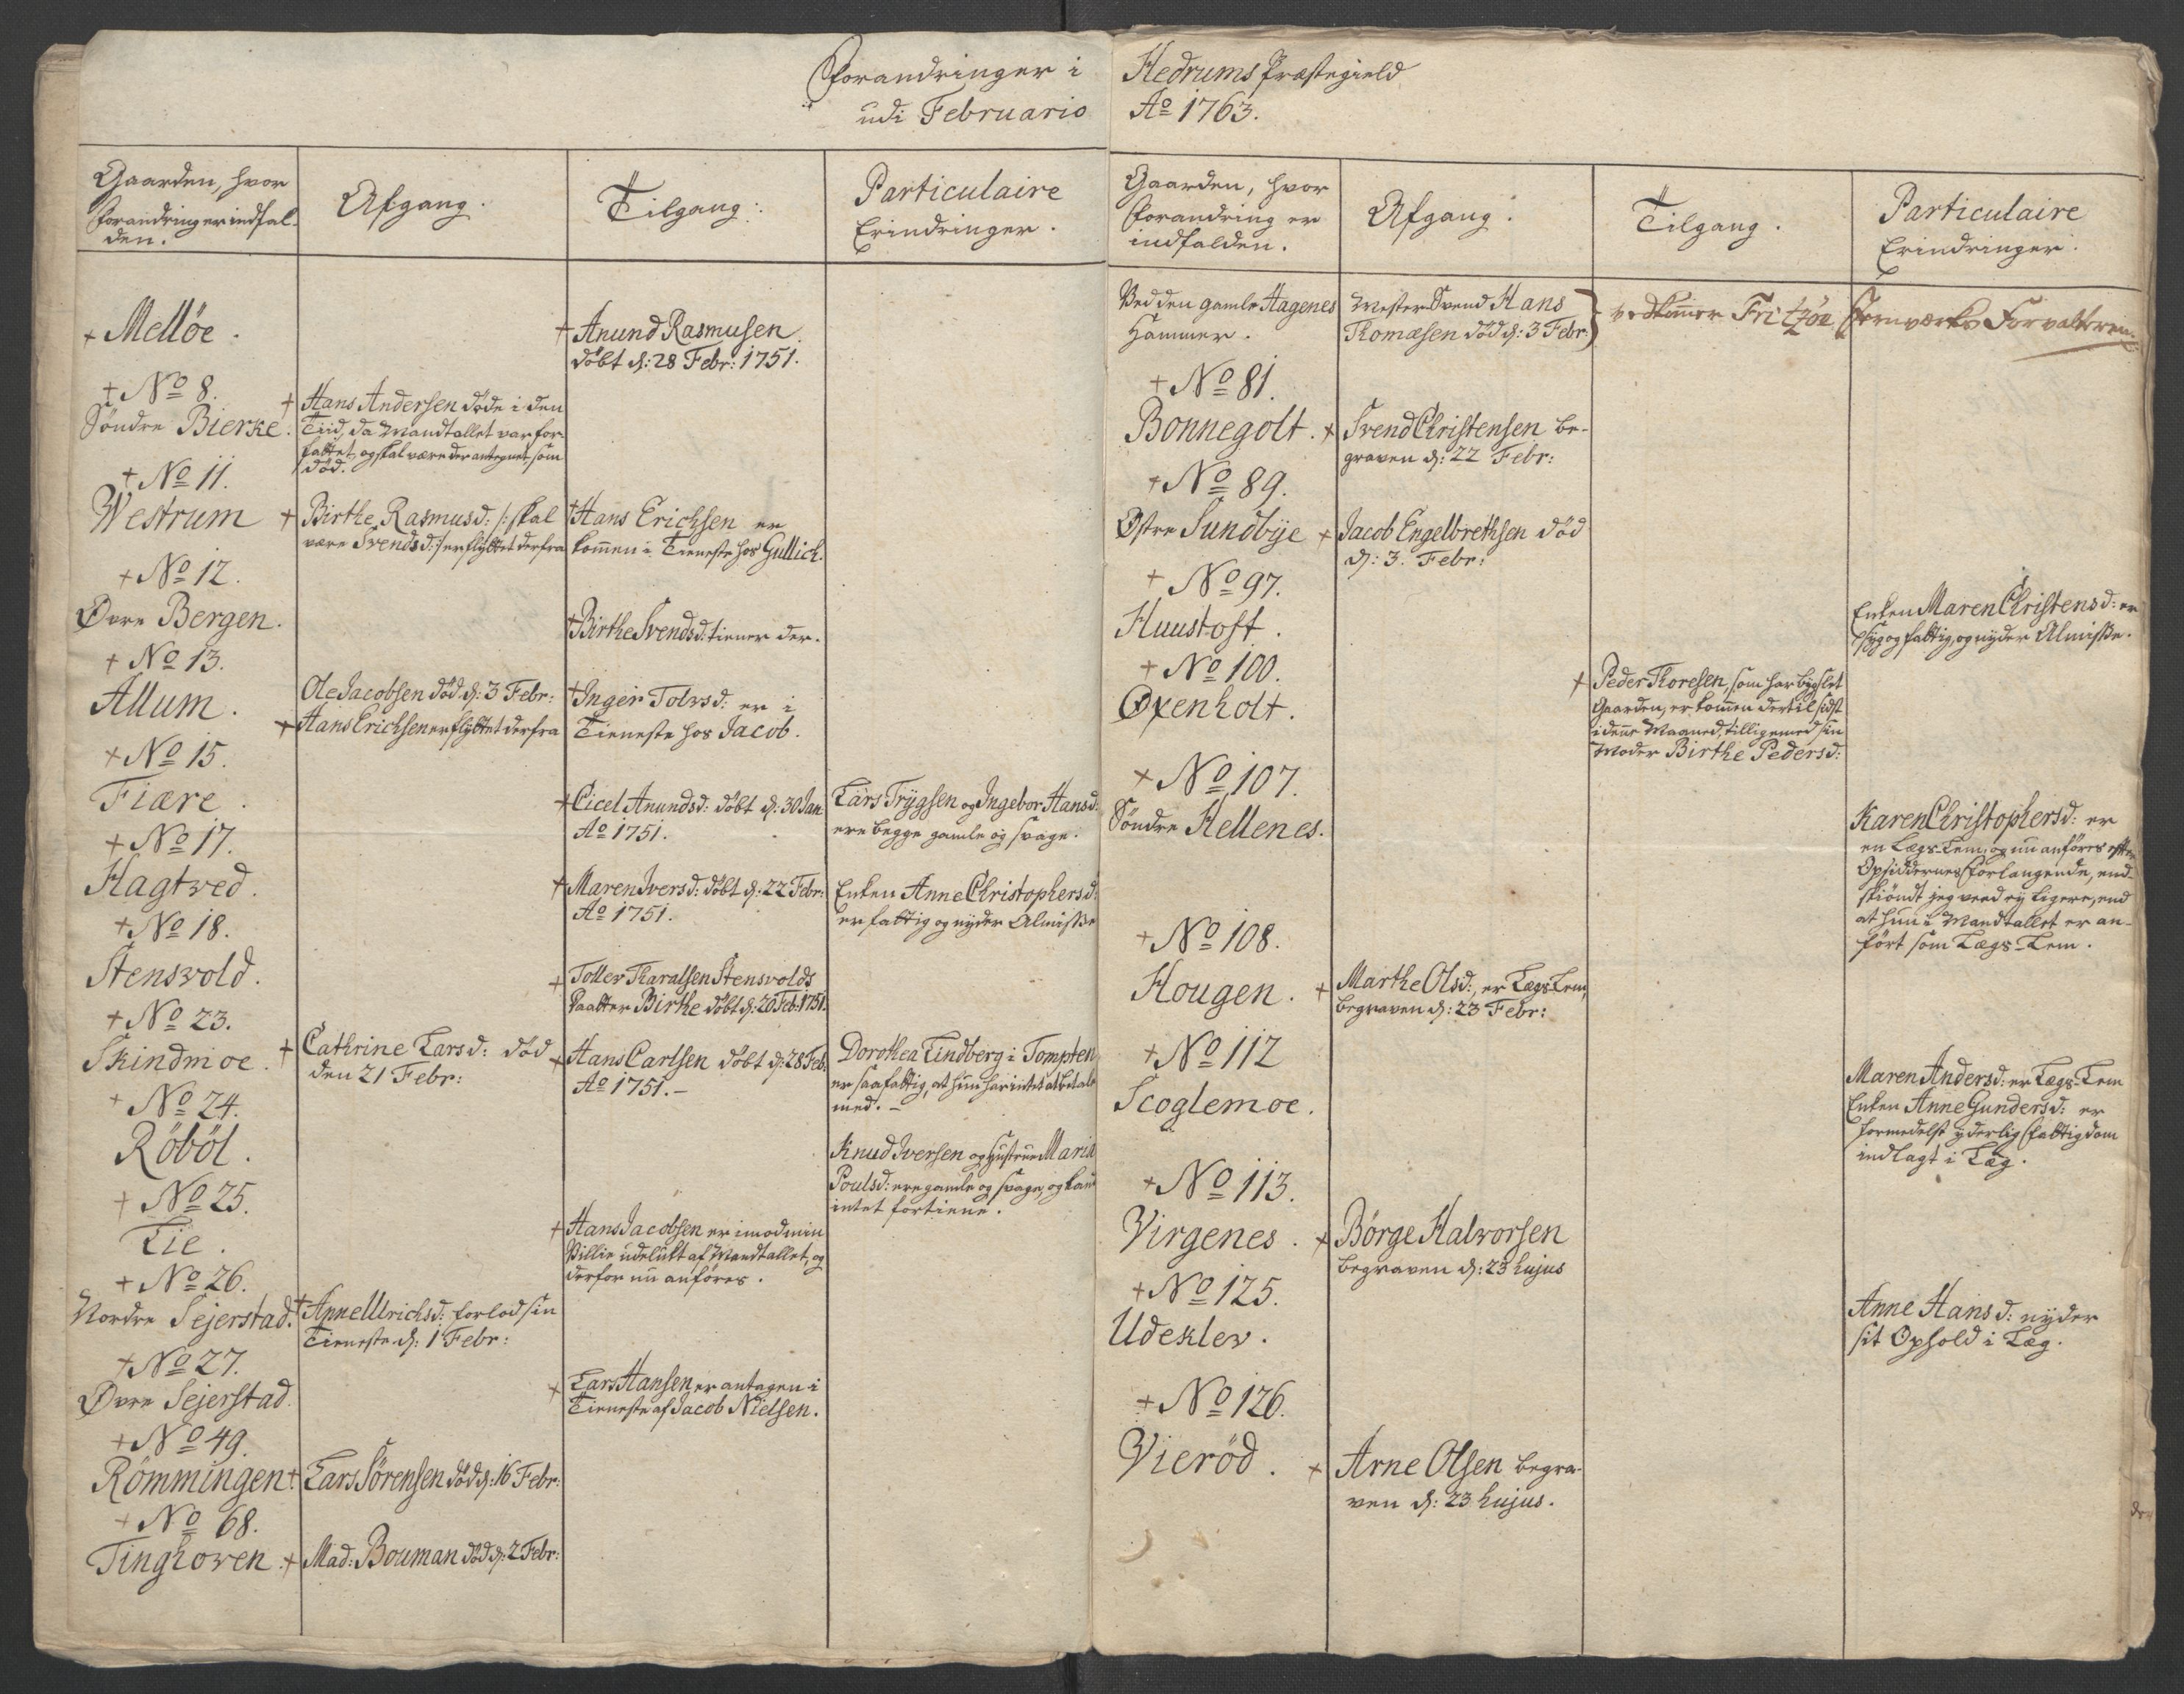 Forandringer i Hedrums Præstegield
udi Februario Ao 1763.
Gaarden, hvor
Forandring er indfal-
den.
Afgang.
Tilgang:
Particulaire
Erindringer.
+ Mellöe.
+ Anund Rasmusen
döbt d: 28 Febr: 1751.
+ No 8.
Söndre Bierke.
+ Hans Andersen döde i den
Tiid, da Mandtallet var for-
fattet, og skal være der antegnet, som
död.
+ No 11.
Westrum
+ Birthe Rasmusd: /: skal
være Svendsd:/ er flÿttet derfra
+ Hans Erichsen er
kommen i Tieneste hos Gullich.
+ No 12.
Øvre Bergen.
+ Birthe Svendsd: tiener der.
+ No 13.
Allum.
Ole Jacobsen död d: 3 Febr:
+ Hans Erichsen er flÿttet derfra
+ Inger Tolvsd: er i
Tieneste hos Jacob.
+ No 15.
Fiære.
+ Cicel Anundsd: döbt d: 30 Jan
Ao 1751.
Lars Trÿgsen og Ingebor Hansd:
ere begge gamle og svage.
+ No 17.
Hagtved.
+ Maren Iversd: döbt d: 22 Febr:
Ao 1751.
Enken Anne Christophersd:
er fattig og nÿder Almisse
+ No 18.
Stensvold.
+ Tollev Haralsen Stensvolds
Daatter Birthe döbt d: 20 Feb: 1751.
+ No 23.
Skindmoe.
+ Cathrine Larsd: död
den 21 Febr:
+ Hans Carlsen döbt d: 28 Feb:
Ao 1751.-
Dorothea Lindberg i Tompten
er saa fattig, at hun har intet at betale
med. -
+ No 24.
Röböl.
Knud Iversen og Hustrue Maria
Poulsd: ere gamle og svage, og kand
intet fortiene.
+ No 25.
Lie.
+ Hans Jacobsen er imod min
Villie udelukt af Mandtallet, og
derfor nu anföres.
+ No 26.
Nordre Sejerstad.
+ Anne Ulrichsd: forlod sin
Tieneste d: 1 Febr:
+ No 27.
Øvre Sejerstad.
+ Lars Hansen er antagen i
Tieneste af Jacob Nielsen.
+ No 49.
Römmingen
+ Lars Sörensen död d: 16 Febr:
+ No 68.
Tinghoven.
+ Mad: Bouman död d: 2 Febr:
Gaarden, hvor
Forandring er
indfalden.
Afgang.
Tilgang.
Particulaire
Erindringer.
Ved den gamle Hagenes
Hammer.
Mester Svend Hans
Thomæsen död d: 3 Febr:
vedkommer Fritzöe Jernværks Forvalteren
+ No 81.
Bonnegolt.
+ Svend Christensen be-
graven d: 22 Febr:
+ No 89.
Østre Sundbÿe
+ Jacob Engelbrethsen död
d: 3. Febr:
+ No 97.
Huustoft.
Enken Maren Christensd: er
sÿg og fattig, og nÿder Almisse.
+ No 100.
Oxenholt.
+ Peder Thoresen, som har bÿgslet
Gaarden, er kommen dertil sidst
i denne Maaned, tilligemed sin
Moder Birthe Pedersd:
+ No 107.
Söndre Hellenes.
Karen Christophersd: er
en Lægs-Lem, og nu anföres efter
Opsiddernes Forlangende, end-
skiöndt jeg veed eÿ rigere, end
at hun i Mandtallet er an-
fört som Lægs-Lem.
+ No 108.
Hougen.
+ Marthe Olsd:, er LægsLem,
begraven d: 23 Febr:
+ No 112
Scoglemoe.
Maren Andersd: er Lægs-Lem
Enken Anne Gundersd: er
formedelst ÿderlig Fattigdom
indlagt i Læg.
+ No 113.
Virgenes.
+ Börge Halvorsen
begraven d: 23 hujus
+ No 125.
Udeklev.
Anne Hansd: nÿder
sit Ophold i Læg.
+ No 126.
Vieröd.
+ Arne Olsen begra-
ven d: 23 hujus.